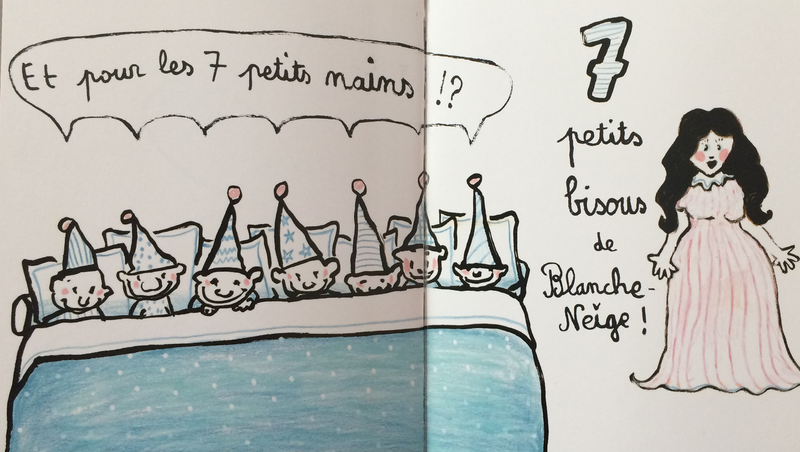 Et pour les 7 petits nains !?
7
petits
bisous
de
Blanche-
Neige !